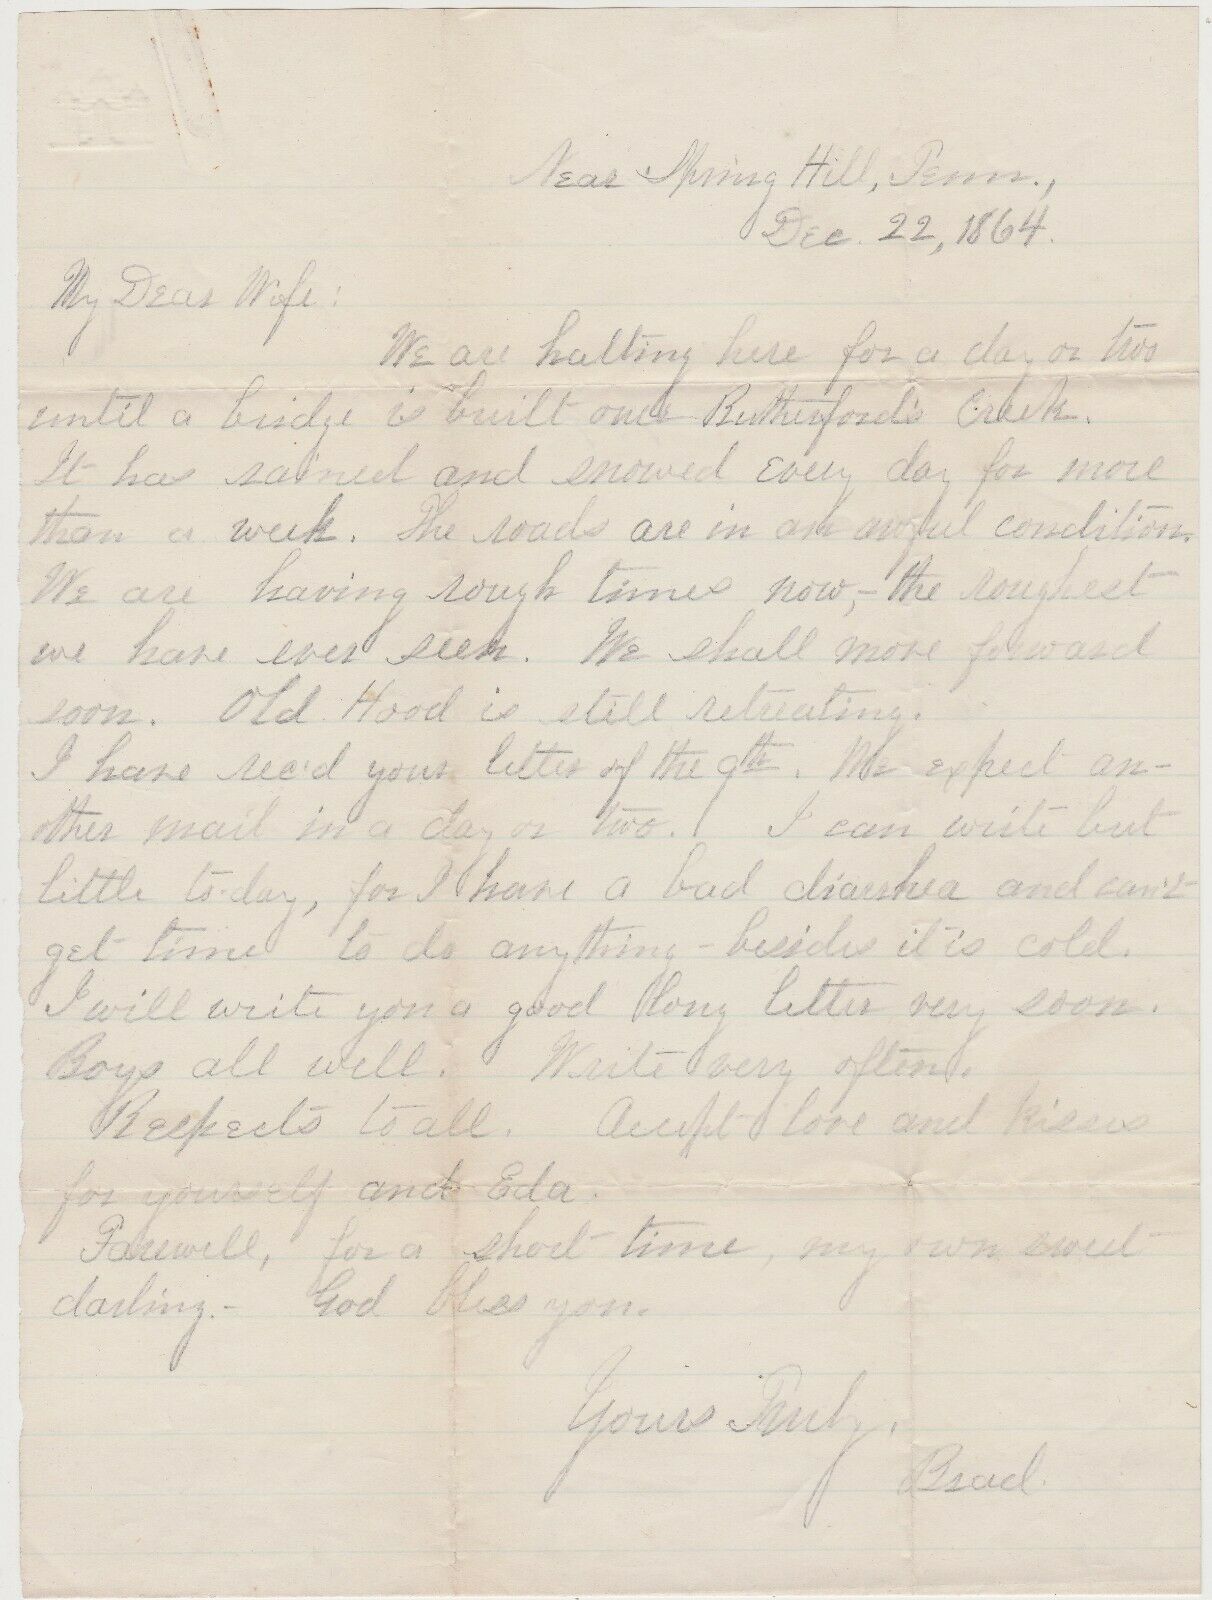 Near Spring Hill, Tenn.,
Dec. 22, 1864.
My Dear Wife:
We are halting here for a day or two
until a bridge is built over Rutherford's Creek.
It has rained and snowed every day for more
than a week. The roads are in an awful condition.
We are having rough times now,- the roughest
we have ever seen. We shall move forward
soon. Old Hood is still retreating.
I have rec'd your letter of the 9th. We expect an-
other mail in a day or two. I can write but
little to-day, for I have a bad diarrhea and can't
get time to do anything - besides it is cold.
I will write you a good long letter very soon.
Boys all well. Write very often.
Respects to all. Accept love and kisses
for yourself and Eda.
Farewell, for a short time, my own sweet
darling.- God bless you.
Yours Truly,
Brad.